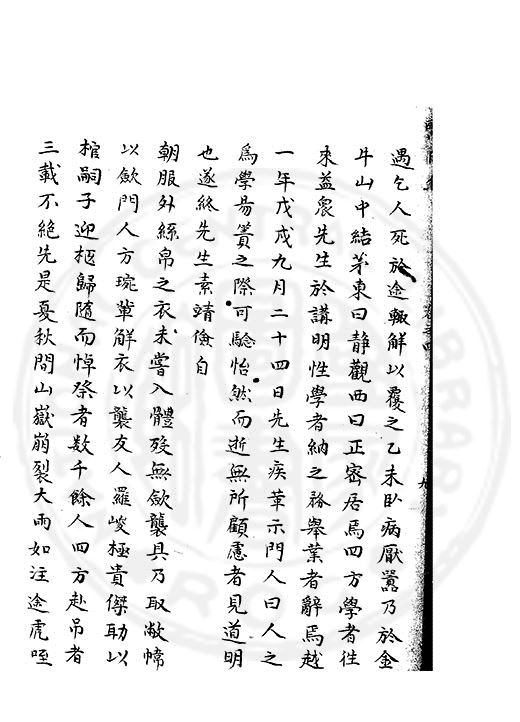 遇乞人死於途輙解以覆之乙未卧病厭囂乃於金
牛山中結茅東曰静觀西曰正密居焉四方學者徃
來益衆先生於講明性學者納之務舉業者辭焉越
一年戊戌九月二十四日先生疾革示門人曰人之
為學易簀之際可驗怡然而逝無所顧慮者見道明
也遂終先生素靖儉自
朝服外絲帛之衣未嘗入體殁無歛襲具乃取敝幃
以歛門人方琬輩觧衣以襲友人羅峻極貴傑助以
棺嗣子迎柩歸随而悼祭者数千餘人四方赴吊者
三載不絶先是夏秋間山嶽崩裂大雨如注途虎咥